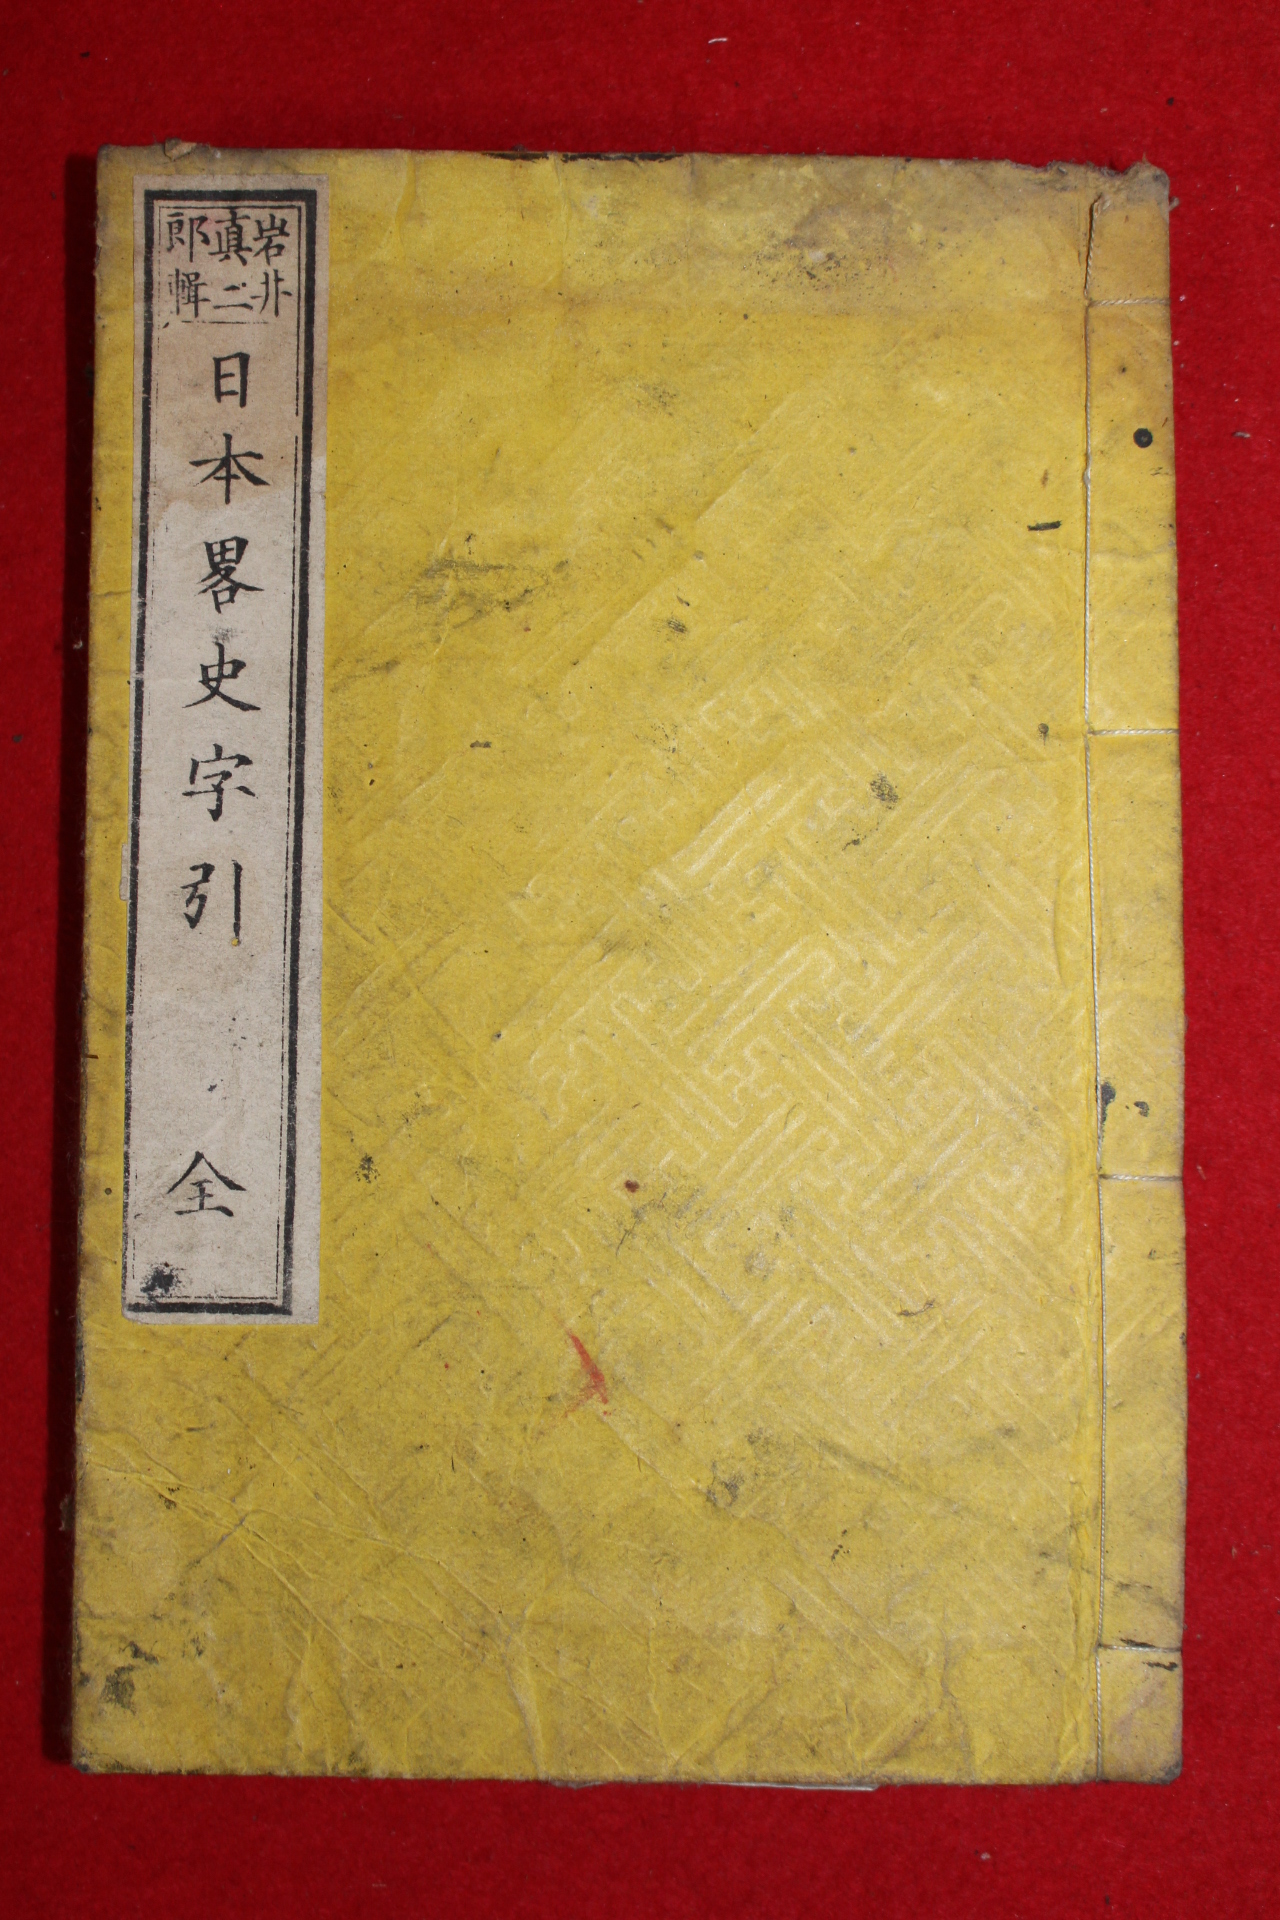 岩井
真二
郎輯
日本畧史字引 全